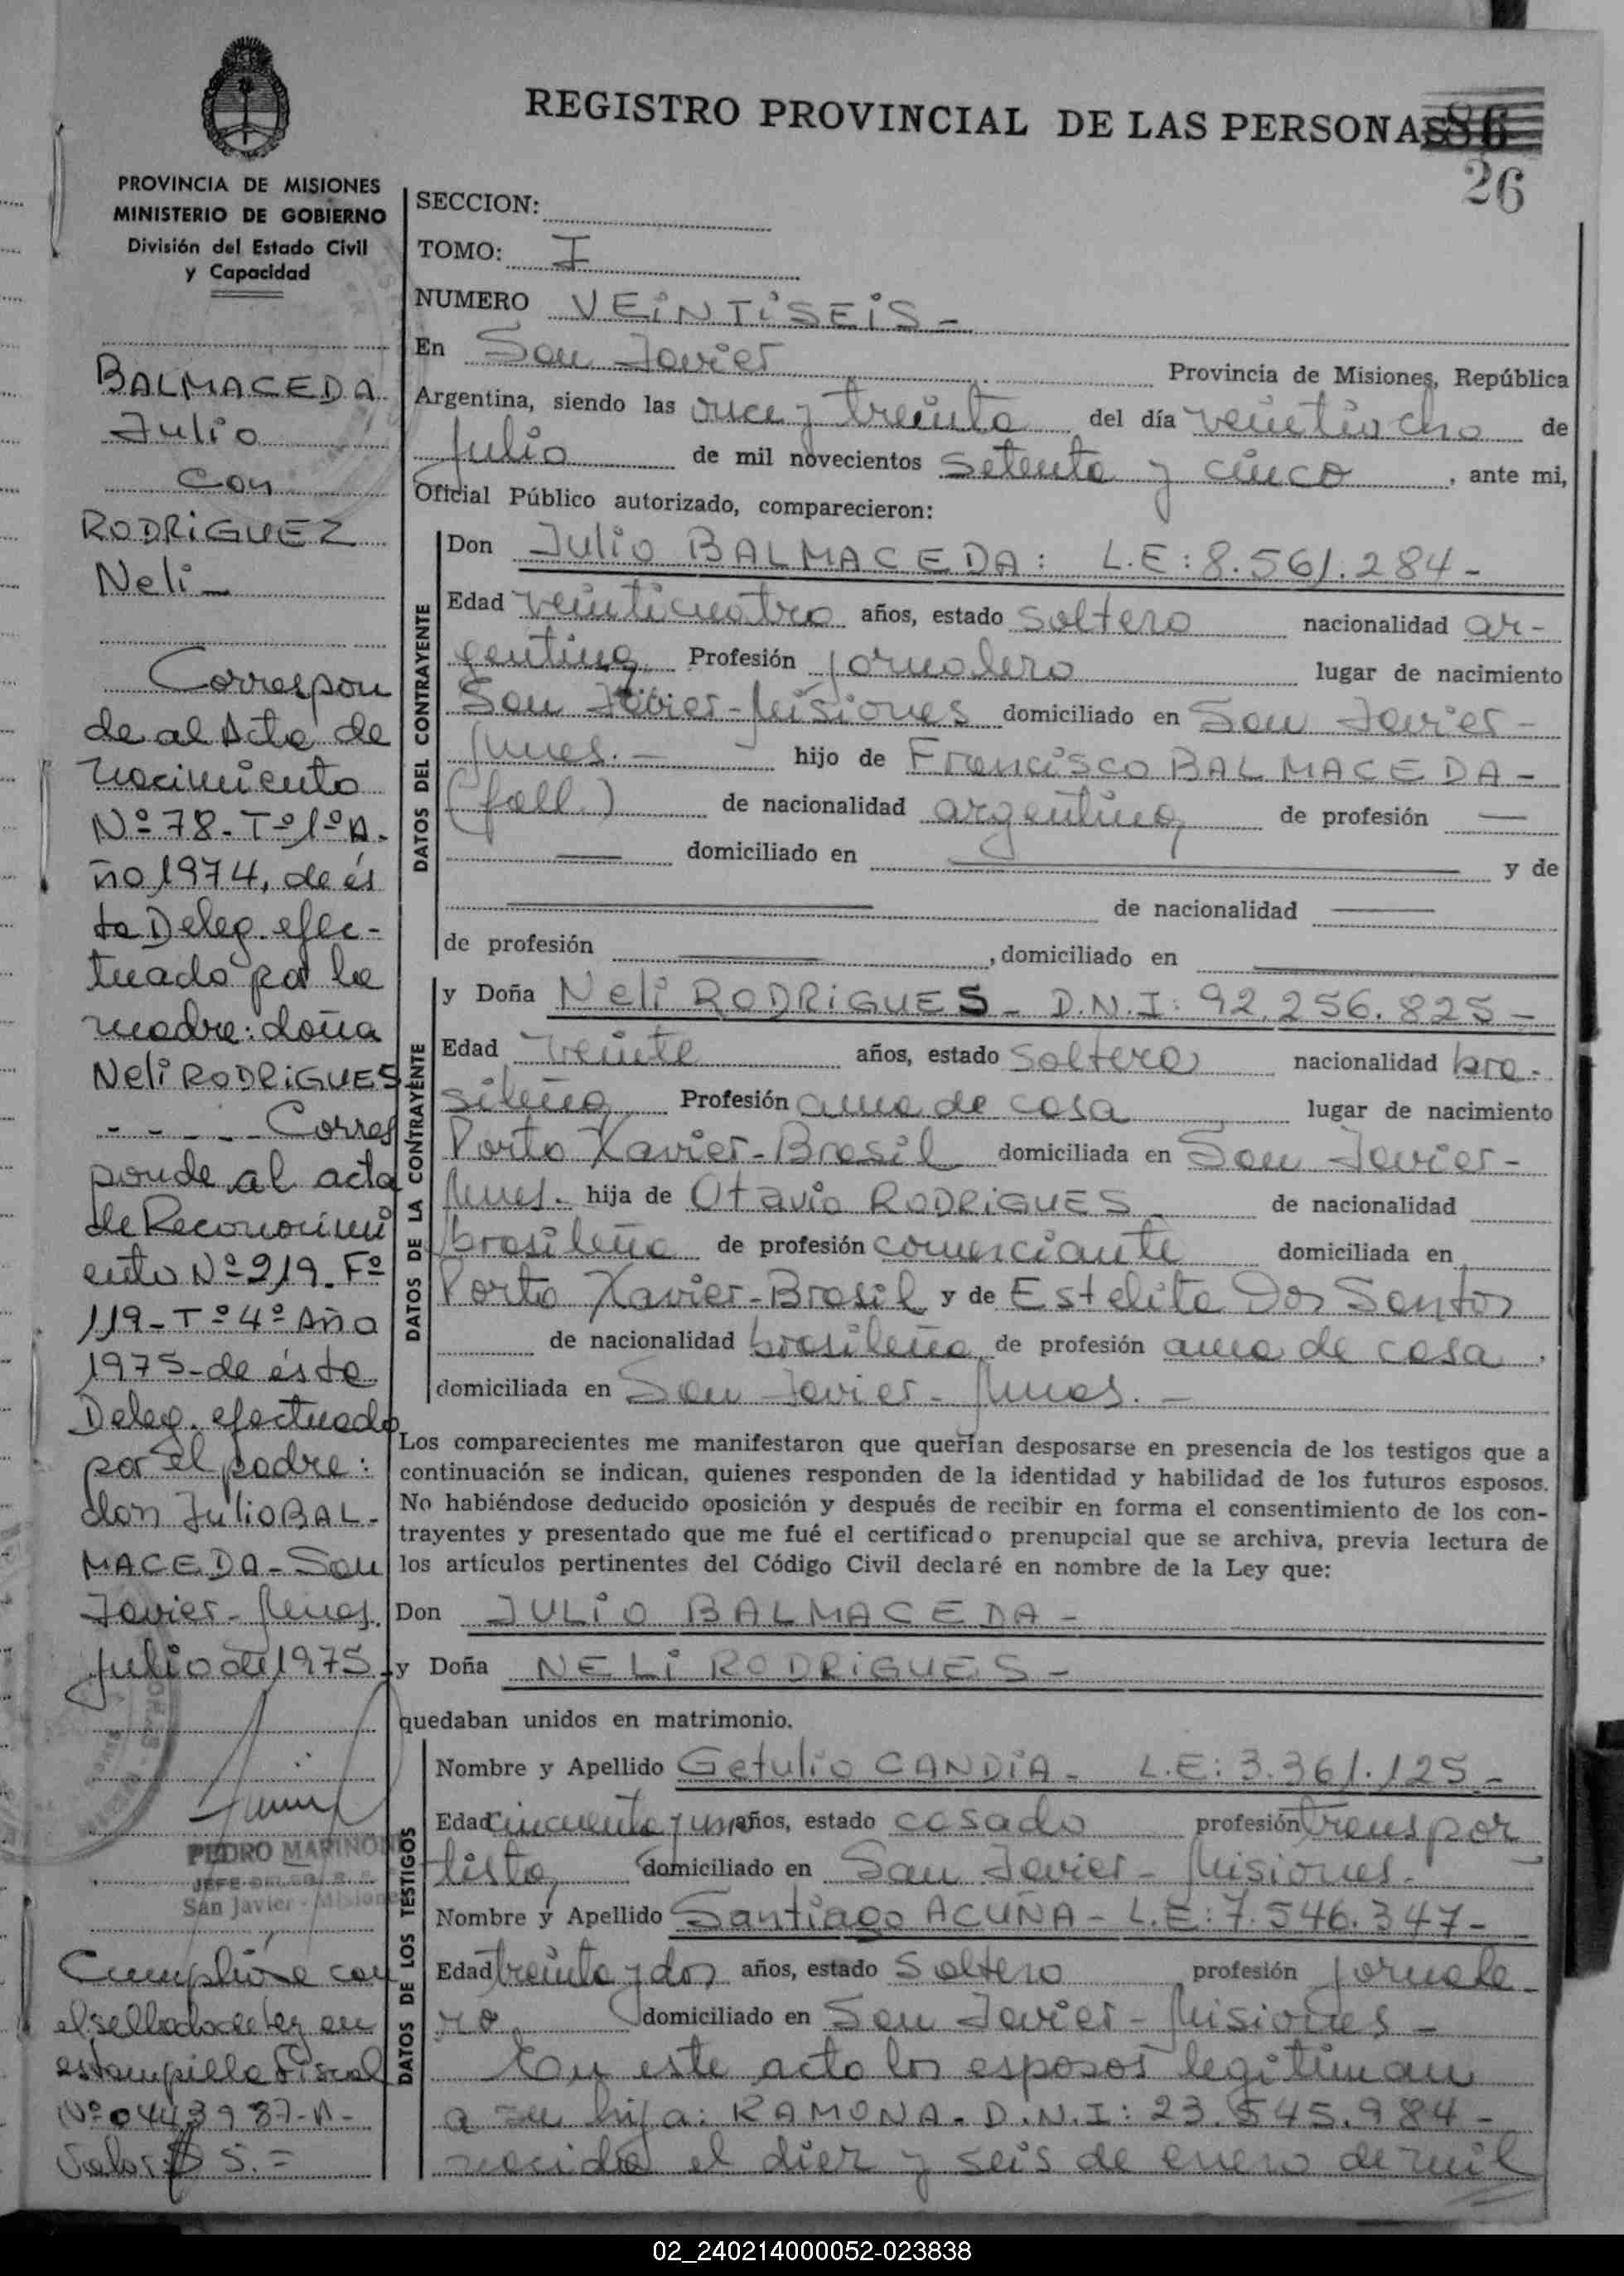 REGISTRO PROVINCIAL DE LAS PERSONAS
86
26
PROVINCIA DE MISIONES
MINISTERIO DE GOBIERNO
División del Estado Civil
y Capacidad
BALMACEDA
Julio
con
RODRIGUEZ
Neli
Correspon
de al Acta de
nacimiento
Nº 78-Tº 1º A-
ño 1974, de és
ta Deleg. efec-
tuado por la
madre: doña
Neli RODRIGUES
- - - - - Corres
ponde al acta
de Reconocimi
ento Nº 219. Fº
119-Tº 4º Año
1975-de ésta
Deleg. efectuado
por el padre:
don Julio BAL-
MACEDA-San
Javier-Mnes.
julio de 1975
PEDRO MARINO
JEFE
San Javier - Misiones
Cumplióse con
el sellado de ley en
estampilla Fiscal
Nº 0443987-A-
Valor $ 5.=
SECCION:
TOMO: I
NUMERO VEINTISEIS-
En San Javier Provincia de Misiones, República
Argentina, siendo las once y treinta del día veintiocho de
julio de mil novecientos setenta y cinco, ante mi,
Oficial Público autorizado, comparecieron:
DATOS DEL CONTRAYENTE
Don Julio BALMACEDA: L.E: 8.561.284-
Edad veinticuatro años, estado soltero nacionalidad ar-
gentina Profesión jornalero lugar de nacimiento
San Javier-Misiones domiciliado en San Javier-
Mnes.- hijo de Francisco BALMACEDA-
(fall.) de nacionalidad argentina de profesión —
— domiciliado en — y de
— de nacionalidad —
de profesión —, domiciliado en —
DATOS DE LA CONTRAYENTE
y Doña Neli RODRIGUES- D.N.I: 92.256.825-
Edad veinte años, estado soltera nacionalidad bra-
sileña Profesión ama de casa lugar de nacimiento
Porto Xavier-Brasil domiciliada en San Javier-
Mnes. hija de Otavio RODRIGUES de nacionalidad
brasileña de profesión comerciante domiciliada en
Porto Xavier-Brasil y de Estelita Dos Santos
de nacionalidad brasileña de profesión ama de casa,
domiciliada en San Javier-Mnes.-
Los comparecientes me manifestaron que querían desposarse en presencia de los testigos que a
continuación se indican, quienes responden de la identidad y habilidad de los futuros esposos.
No habiéndose deducido oposición y después de recibir en forma el consentimiento de los con-
trayentes y presentado que me fué el certificado prenupcial que se archiva, previa lectura de
los artículos pertinentes del Código Civil declaré en nombre de la Ley que:
Don JULIO BALMACEDA-
y Doña NELI RODRIGUES-
quedaban unidos en matrimonio.
DATOS DE LOS TESTIGOS
Nombre y Apellido Getulio CANDIA- L.E: 3.361.125-
Edad cincuenta y un años, estado casado profesión transpor
tista, domiciliado en San Javier-Misiones.
Nombre y Apellido Santiago ACUÑA-L.E: 7.546.347-
Edad treinta y dos años, estado soltero profesión jornale
ro domiciliado en San Javier-Misiones-
En este acto los esposos legitiman
a su hija: RAMONA-D.N.I: 23.545.984-
nacida el diez y seis de enero de mil
02_240214000052-023838